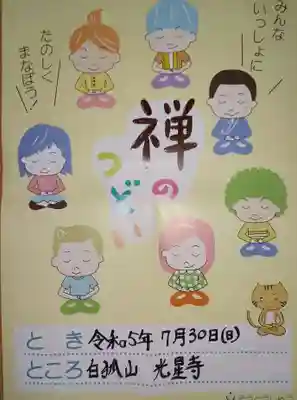 みんな
いっしょに
たのしく
まなぼう！
禅の
つどい
とき 令和5年 7月30日(日)
ところ 白狐山 光星寺